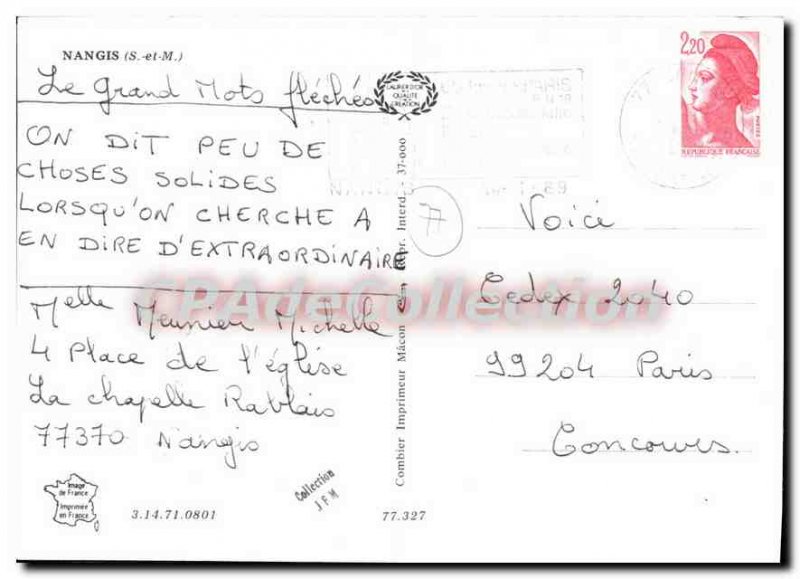 NANGIS (S.-et-M.)
Le Grand Mots fléchés
ON DIT PEU DE
CHOSES SOLIDES
LORSQU'ON CHERCHE A
EN DIRE D'EXTRAORDINAIRE
Melle Meunier Michelle
4 Place de l'église
La chapelle Rablais
77370 Nangis
Image
de France
Imprimée
en France
3.14.71.0801
Collection
J F M
77.327
LAURIER D'OR
DE LA
QUALITÉ
CRÉATION
NANGIS
Combier Imprimeur Mâcon Repr. Interd. - 37-000
77
2,20
REPUBLIQUE FRANÇAISE
Voici
Cedex 2040
99204 Paris
Concours.
CPAdeCollection